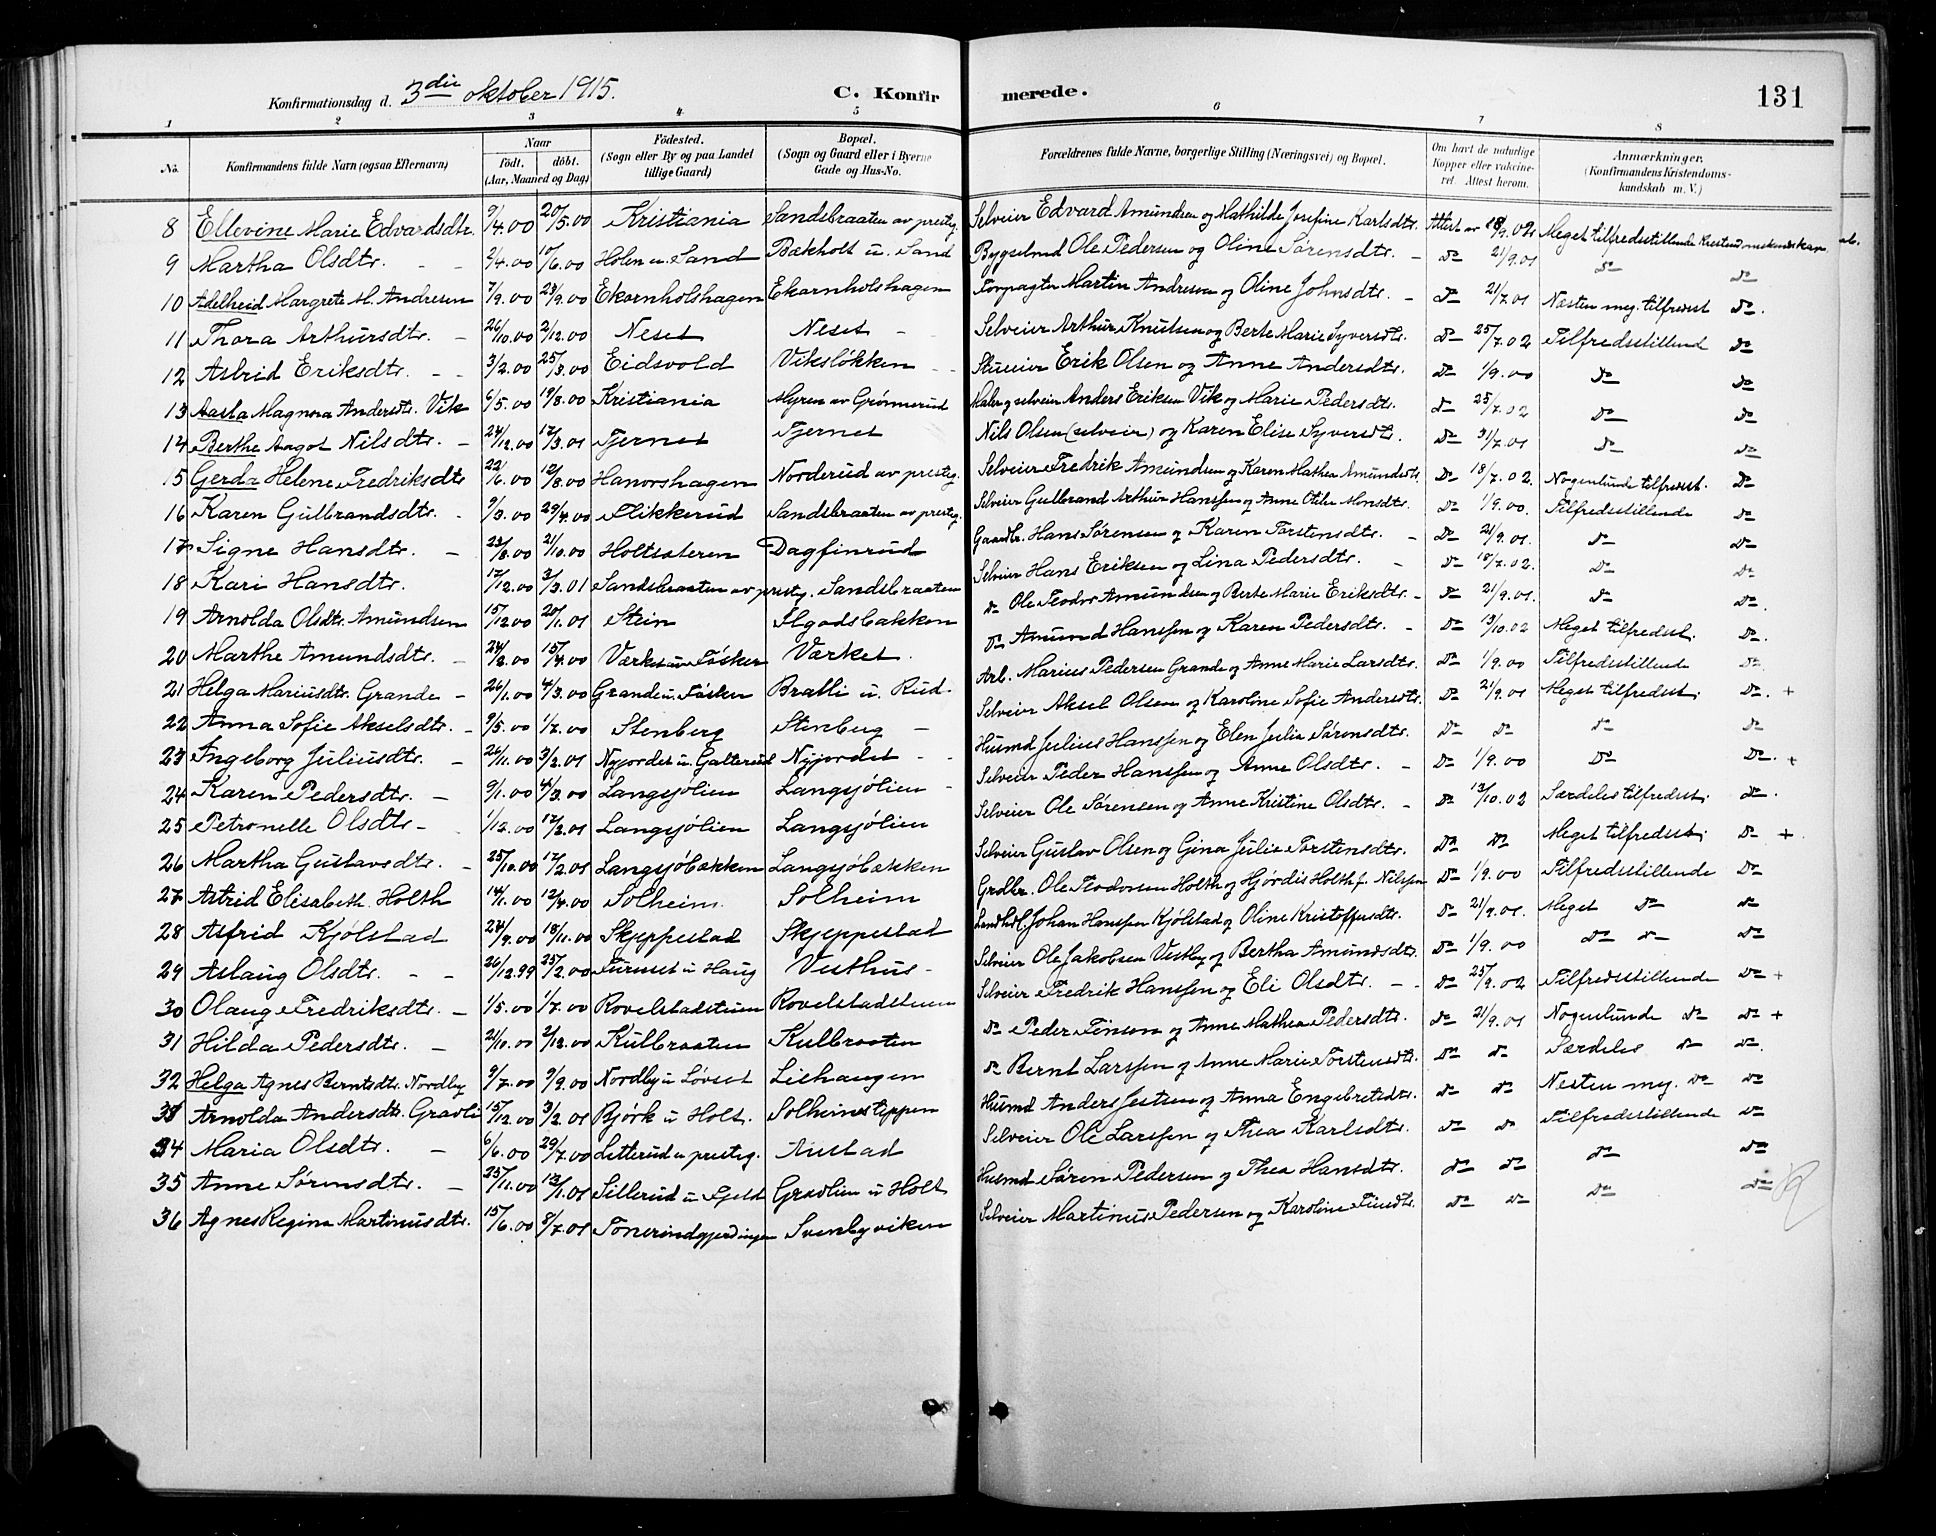 Konfirmationsdag d. 3die oktober 1915. C. Konfirmerede. 131
1 2 3 4 5 6 7 8
No. Konfirmandens fulde Navn (ogsaa Efternavn) Naar født. døbt. (Aar, Maaned og Dag) Fødested. (Sogn eller By og paa Landet tillige Gaard) Bopæl. (Sogn og Gaard eller i Byerne Gade og Hus-No. Forældrenes fulde Navne, borgerlige Stilling (Næringsvei) og Bopæl. Om havt de naturlige Kopper eller vakcineret. Attest herom. Anmærkninger. (Konfirmandens Kristendomskundskab m. V.)
8 Ellevine Marie Edvardsdtr. 9/4.00 20/5.00 Kristiania Sandsbraaten av presteg. Selveier Edvard Amundsen og Mathilde Josefine Karlsdtr. Attest av 18/9.02 Meget tilfredsstillende
9 Martha Olsdtr. 2/4.00 10/6.00 Holen u. Sand Bakholt u. Sand Bygselmd Ole Pedersen og Oline Sørensdtr. do 21/9.01 do do
10 Adelheid Margrete M. Andresen 7/9.00 23/9.00 Ekornholshagen Ekornholshagen Forpagter Martin Andresen og Oline Johnsdtr. do 21/7.01 Næsten meg. tilfredsst do.
11 Thora Arthursdtr. 26/10.00 2/12.00 Neset Neset Selveier Arthur Knutsen og Berte Marie Syversdtr. do 25/7.02 Tilfredsstillend do
12 Astrid Eriksdtr. 3/2.00 25/3.00 Eidsvold Viksløkken Erik Olsen og Anne Andersdtr. do 1/9.00 do do
13 Aasta Magnora Andersdtr. Vik 6/5.00 19/8.00 Kristiania Myren av Grønnerud Maler og selveier Anders Eriksen Vik og Marie Pedersdtr. do 25/7.02 do do
14 Berthe Aagot Nilsdtr. 24/12.00 17/3.01 Tjernet Tjernet Nils Olsen (selveier) og Karen Elise Syversdtr. do 31/7.01 do do
15 Gerda Helene Fredriksdtr 22/6.00 12/8.00 Hanorshagen Norderud av presteg. Selveier Fredrik Amundsen og Karen Mathea Amundsdtr. do 18/7.02. Nogenlunde tilfredsst. do
16 Karen Gulbrandsdtr. 9/3.00 29/4.00 Flikkerud Sandsbraaten av presteg. Selveier Gulbrand Arthur Hanssen og Anne Otilie Monsdtr. do 1/9.00. Tilfredsstillende do
17 Signe Hansdtr. 23/8.00 21/10.00 Holtsæteren Dagfinrud Gaardbr. Hans Sørensen og Karen Torstensdtr. do 21/9.01. do do
18 Kari Hansdtr. 17/12.00 3/3.01 Sandsbraaten av presteg. Sandsbraaten Selveier Hans Eriksen og Lina Pedersdtr. do 18/7.02. do do
19 Arnolda Olsdtr. Amundsen 15/12.00 20/1.01 Stein do Ole Teodor Amundsen og Berte Marie Eriksdtr. do 21/9.01. do do.
20 Marthe Amundsdtr. 24/2.00 15/4.00 Værket Værket. do Amund Hanssen og Karen Pedersdtr. do 13/10.02 Meget tilfredsst. do.
21 Helga Mariusdtr. Grande 26/1.00 4/3.00 Grande u. Tosken Bratli u. Rud. Arb. Marius Pedersen Grande og Anne Marie Larsdtr. do 1/9.00 Tilfredsstillende do
22 Anna Sofie Akselsdtr. 9/5.00 1/7.00 Stenberg Stenberg Selveier Aksel Olsen og Karoline Sofie Andersdtr. do 21/9.01 Meget tilfredsst. do. +
23 Ingeborg Juliusdtr. 26/11.00 3/2.01 Nyjordet u. Galterud Nyjordet Husmd Julius Hanssen og Elen Julie Sørensdtr. do do do do
24 Karen Pedersdtr. 9/1.00 4/3.00 Langsjølien Langsjølien Selveier Peder Hanssen og Anne Olsdtr. do 1/9.00 do do. +
25 Petronelle Olsdtr. 1/12.00 17/2.01 Langsjølien Langsjølien Selveier Ole Sørensen og Anne Kristine Olsdtr. do 13/10.02 Særdeles tilfredsst. do.
26 Martha Gustavsdtr. 25/10.00 17/2.01 Langsjøbakken Langsjøbakken Selveier Gustav Olsen og Gina Julie Torstensdtr. do do Meget tilfredsst. do +
27 Astrid Elisabeth Holth 14/1.00 12/4.00 Solheim. Solheim Grdbr. Ole Teodorsen Holth og Hjørdis Holth f. Nilssen do 1/9.00 Tilfredsstillende do
28 Asfrid Kjølstad 24/9.00 18/11.00 Skjeppestad Skjeppestad Landhdl. Johan Hanssen Kjølstad og Oline Kristoffersdtr. do 21/9.01. Meget do do
29 Aslaug Olsdtr. 26/12.99 25/2.00 Furuset u Haug Vesthus Selveier Ole Jakobsen Vestby og Bertha Amundsdtr. do 1/9.00 do do do
30 Olaug Fredriksdtr. 1/5.00 1/7.00 Rovelstadsteien Rovelstadsteien Selveier Fredrik Hanssen og Eli Olsdtr. do 25/9.02 Tilfredsstillende do +
31 Hilda Pedersdtr. 21/10.00 2/12.00 Kulbraaten Kulbraaten do Peder Finsen og Anne Mathea Pedersdtr. do 21/9.01 Nogenlunde do do +
32 Helga Agnes Berntsdtr. Nordby 9/7.00 9/9.00 Nordby u Løvset Liehaugen do Bernt Larssen og Anne Marie Torstensdtr. do do Særdeles do do.
33 Arnolda Andersdtr. Gravli 15/12.00 3/2.01 Bjørk u Holt. Solheimsteppen Husmd Anders Jensen og Anna Engebretsdtr. do do Nesten meg. do do
34 Maria Olsdtr. 6/6.00 29/7.00 Letterud u presteg. Austad Selveier Ole Larssen og Thea Karlsdtr. do do Tilfredsstillende do
35 Anne Sørensdtr. 25/11.00 13/1.01 Sillerud u Fjeld Gravlien u Holt Husmd Søren Pedersen og Thea Hansdtr. do do do do
36 Agnes Regine Martinusdtr. 15/6.00 8/7.01 Svenbyviken Selveier Martinus Pedersen og Karoline Finsdtr. do do do do